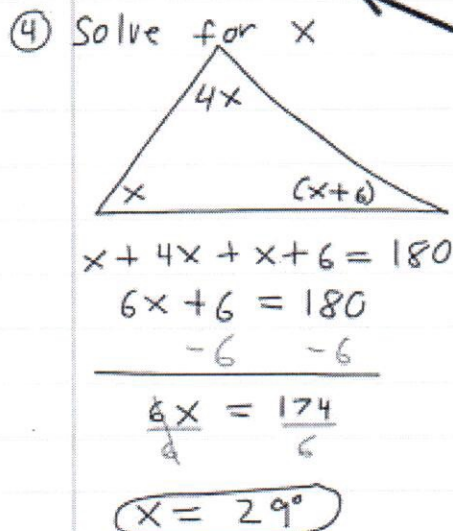 ④ Solve for x
4x
x (x+6)
x + 4x + x + 6 = 180
6x + 6 = 180
-6 -6
6x/6 = 174/6
x = 29°